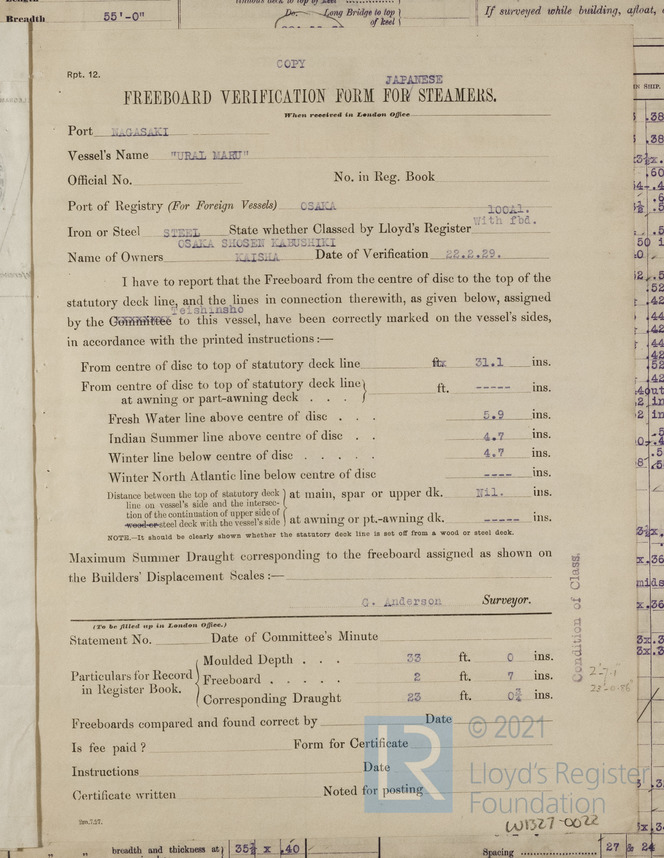 Breadth 55'-0"
Long Bridge to top of keel
If surveyed while building, afloat,
COPY
Rpt. 12.
JAPANESE
FREEBOARD VERIFICATION FORM FOR STEAMERS.
When received in London Office
Port NAGASAKI
Vessel's Name "URAL MARU"
Official No. No. in Reg. Book
Port of Registry (For Foreign Vessels) OSAKA 100A1.
With fbd.
Iron or Steel STEEL State whether Classed by Lloyd's Register
OSAKA SHOSEN KABUSHIKI
Name of Owners KAISHA Date of Verification 22.2.29.
I have to report that the Freeboard from the centre of disc to the top of the
statutory deck line, and the lines in connection therewith, as given below, assigned
Teishinsho
by the Committee to this vessel, have been correctly marked on the vessel's sides,
in accordance with the printed instructions:—
From centre of disc to top of statutory deck line ft. 31.1 ins.
From centre of disc to top of statutory deck line
at awning or part-awning deck . . . ft. ----- ins.
Fresh Water line above centre of disc . . 5.9 ins.
Indian Summer line above centre of disc . . 4.7 ins.
Winter line below centre of disc . . . . . 4.7 ins.
Winter North Atlantic line below centre of disc ---- ins.
Distance between the top of statutory deck
line on vessel's side and the intersec-
tion of the continuation of upper side of
wood or steel deck with the vessel's side
at main, spar or upper dk. Nil. ins.
at awning or pt.-awning dk. ----- ins.
NOTE.—It should be clearly shown whether the statutory deck line is set off from a wood or steel deck.
Maximum Summer Draught corresponding to the freeboard assigned as shown on
the Builders' Displacement Scales:—
G. Anderson Surveyor.
(To be filled up in London Office.)
Statement No. Date of Committee's Minute
Particulars for Record
in Register Book.
Moulded Depth . . . 33 ft. 0 ins.
Freeboard . . . . . 2 ft. 7 ins.
Corresponding Draught 23 ft. 0¾ ins.
Freeboards compared and found correct by Date
Is fee paid ? Form for Certificate
Instructions Date
Certificate written Noted for posting
Condition of Class.
© 2021
LR
Lloyd's Register
Foundation
W1327-0022
breadth and thickness at 35½ x .40
Spacing 27 & 24